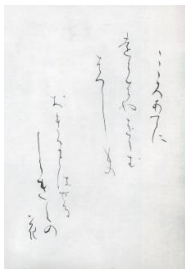 こゝろあてに
をらはやをらむ
はつしもの
おきまとはせる
しらきくの
花